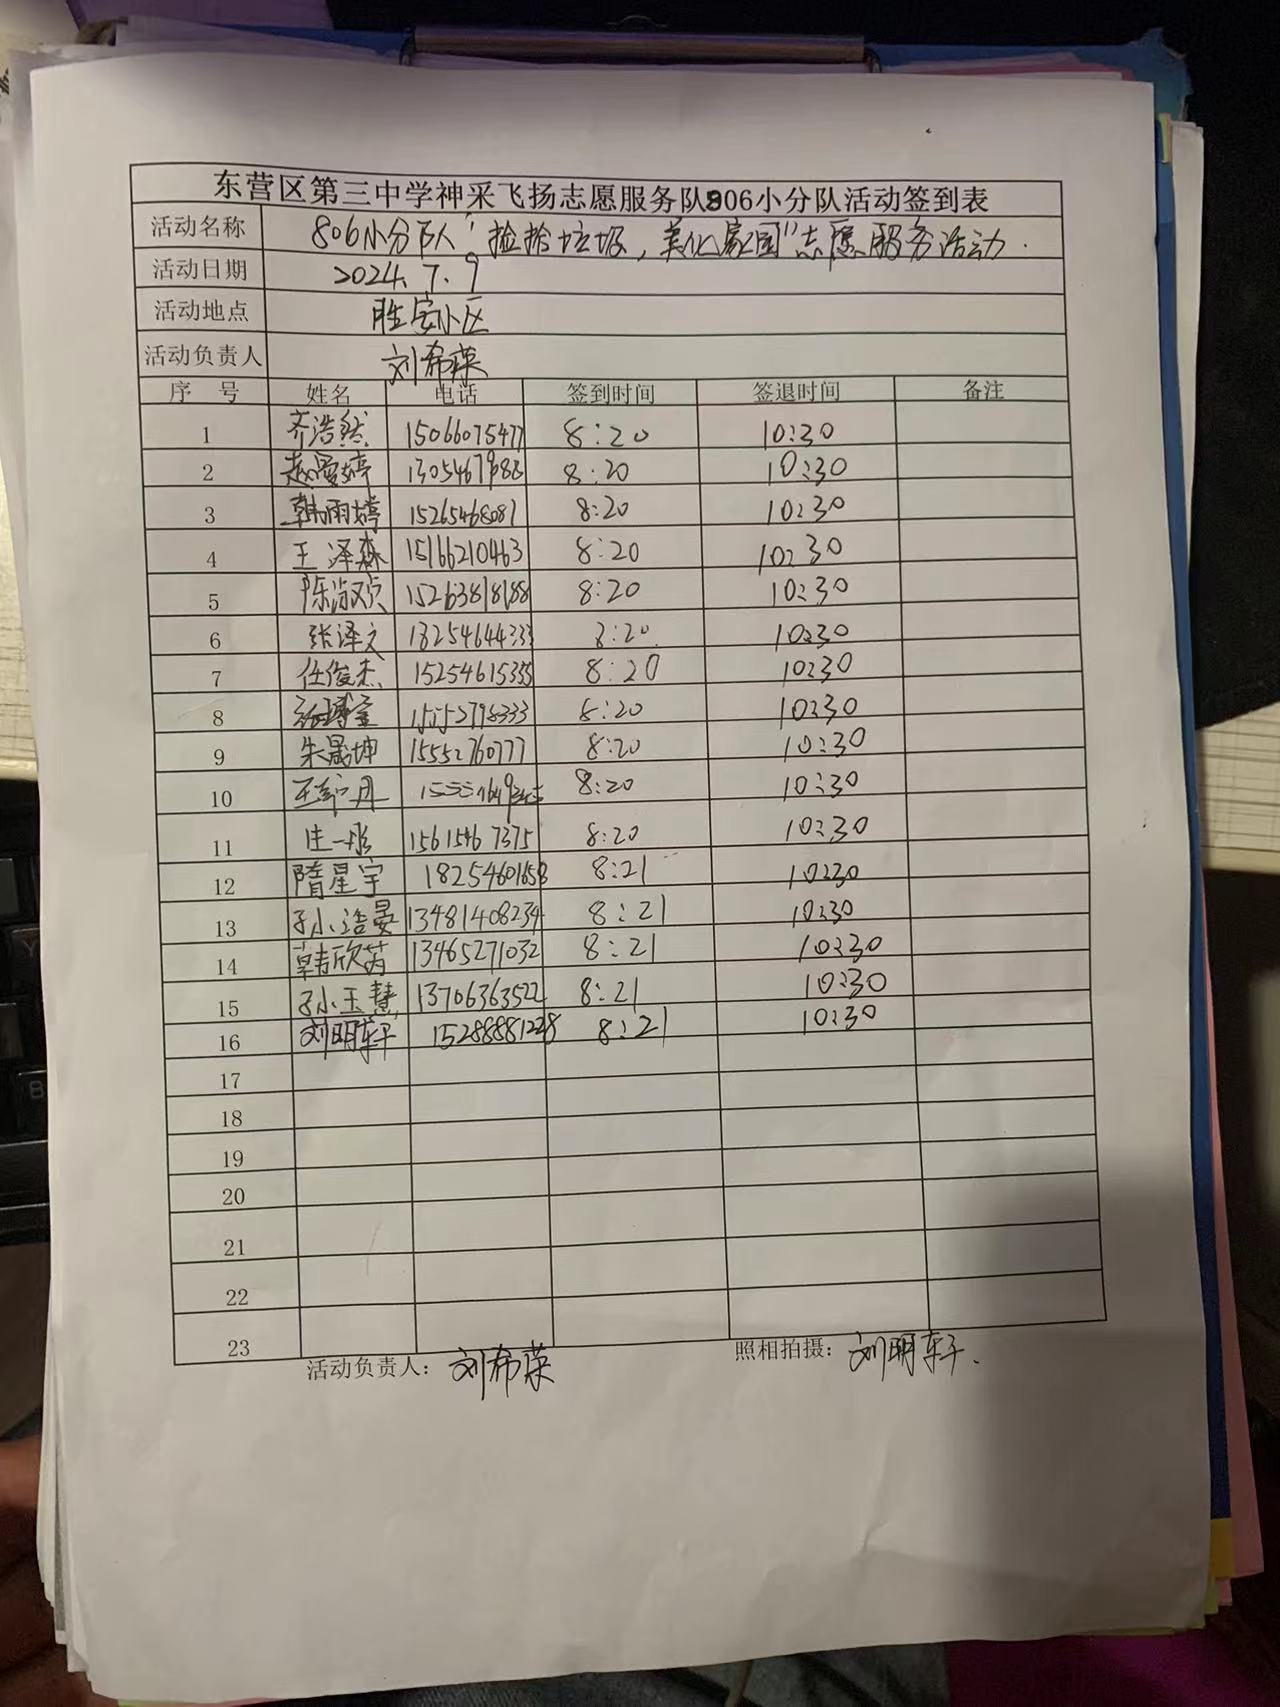 东营区第三中学神采飞扬志愿服务队806小分队活动签到表
活动名称 806小分队“捡拾垃圾，美化家园”志愿服务活动.
活动日期 2024.7.9
活动地点 胜安小区
活动负责人 刘希荣
序 号 姓名 电话 签到时间 签退时间 备注
1 齐浩然 15066075477 8:20 10:30
2 赵曼婷 8:20 10:30
3 韩雨婷 15265468081 8:20 10:30
4 王泽森 15166210463 8:20 10:30
5 陈淑贞 15263818188 8:20 10:30
6 张泽文 18254644333 8:20 10:30
7 任俊杰 15254615355 8:20 10:30
8 8:20 10:30
9 朱晟坤 15552760777 8:20 10:30
10 8:20 10:30
11 庄一彤 15615467375 8:20 10:30
12 隋星宇 18254601658 8:21 10:30
13 孙浩晏 13481408234 8:21 10:30
14 韩欣芮 13465271032 8:21 10:30
15 孙玉慧 13706363522 8:21 10:30
16 刘明轩 15288881228 8:21 10:30
17
18
19
20
21
22
23
活动负责人：刘希荣 照相拍摄：刘明轩.